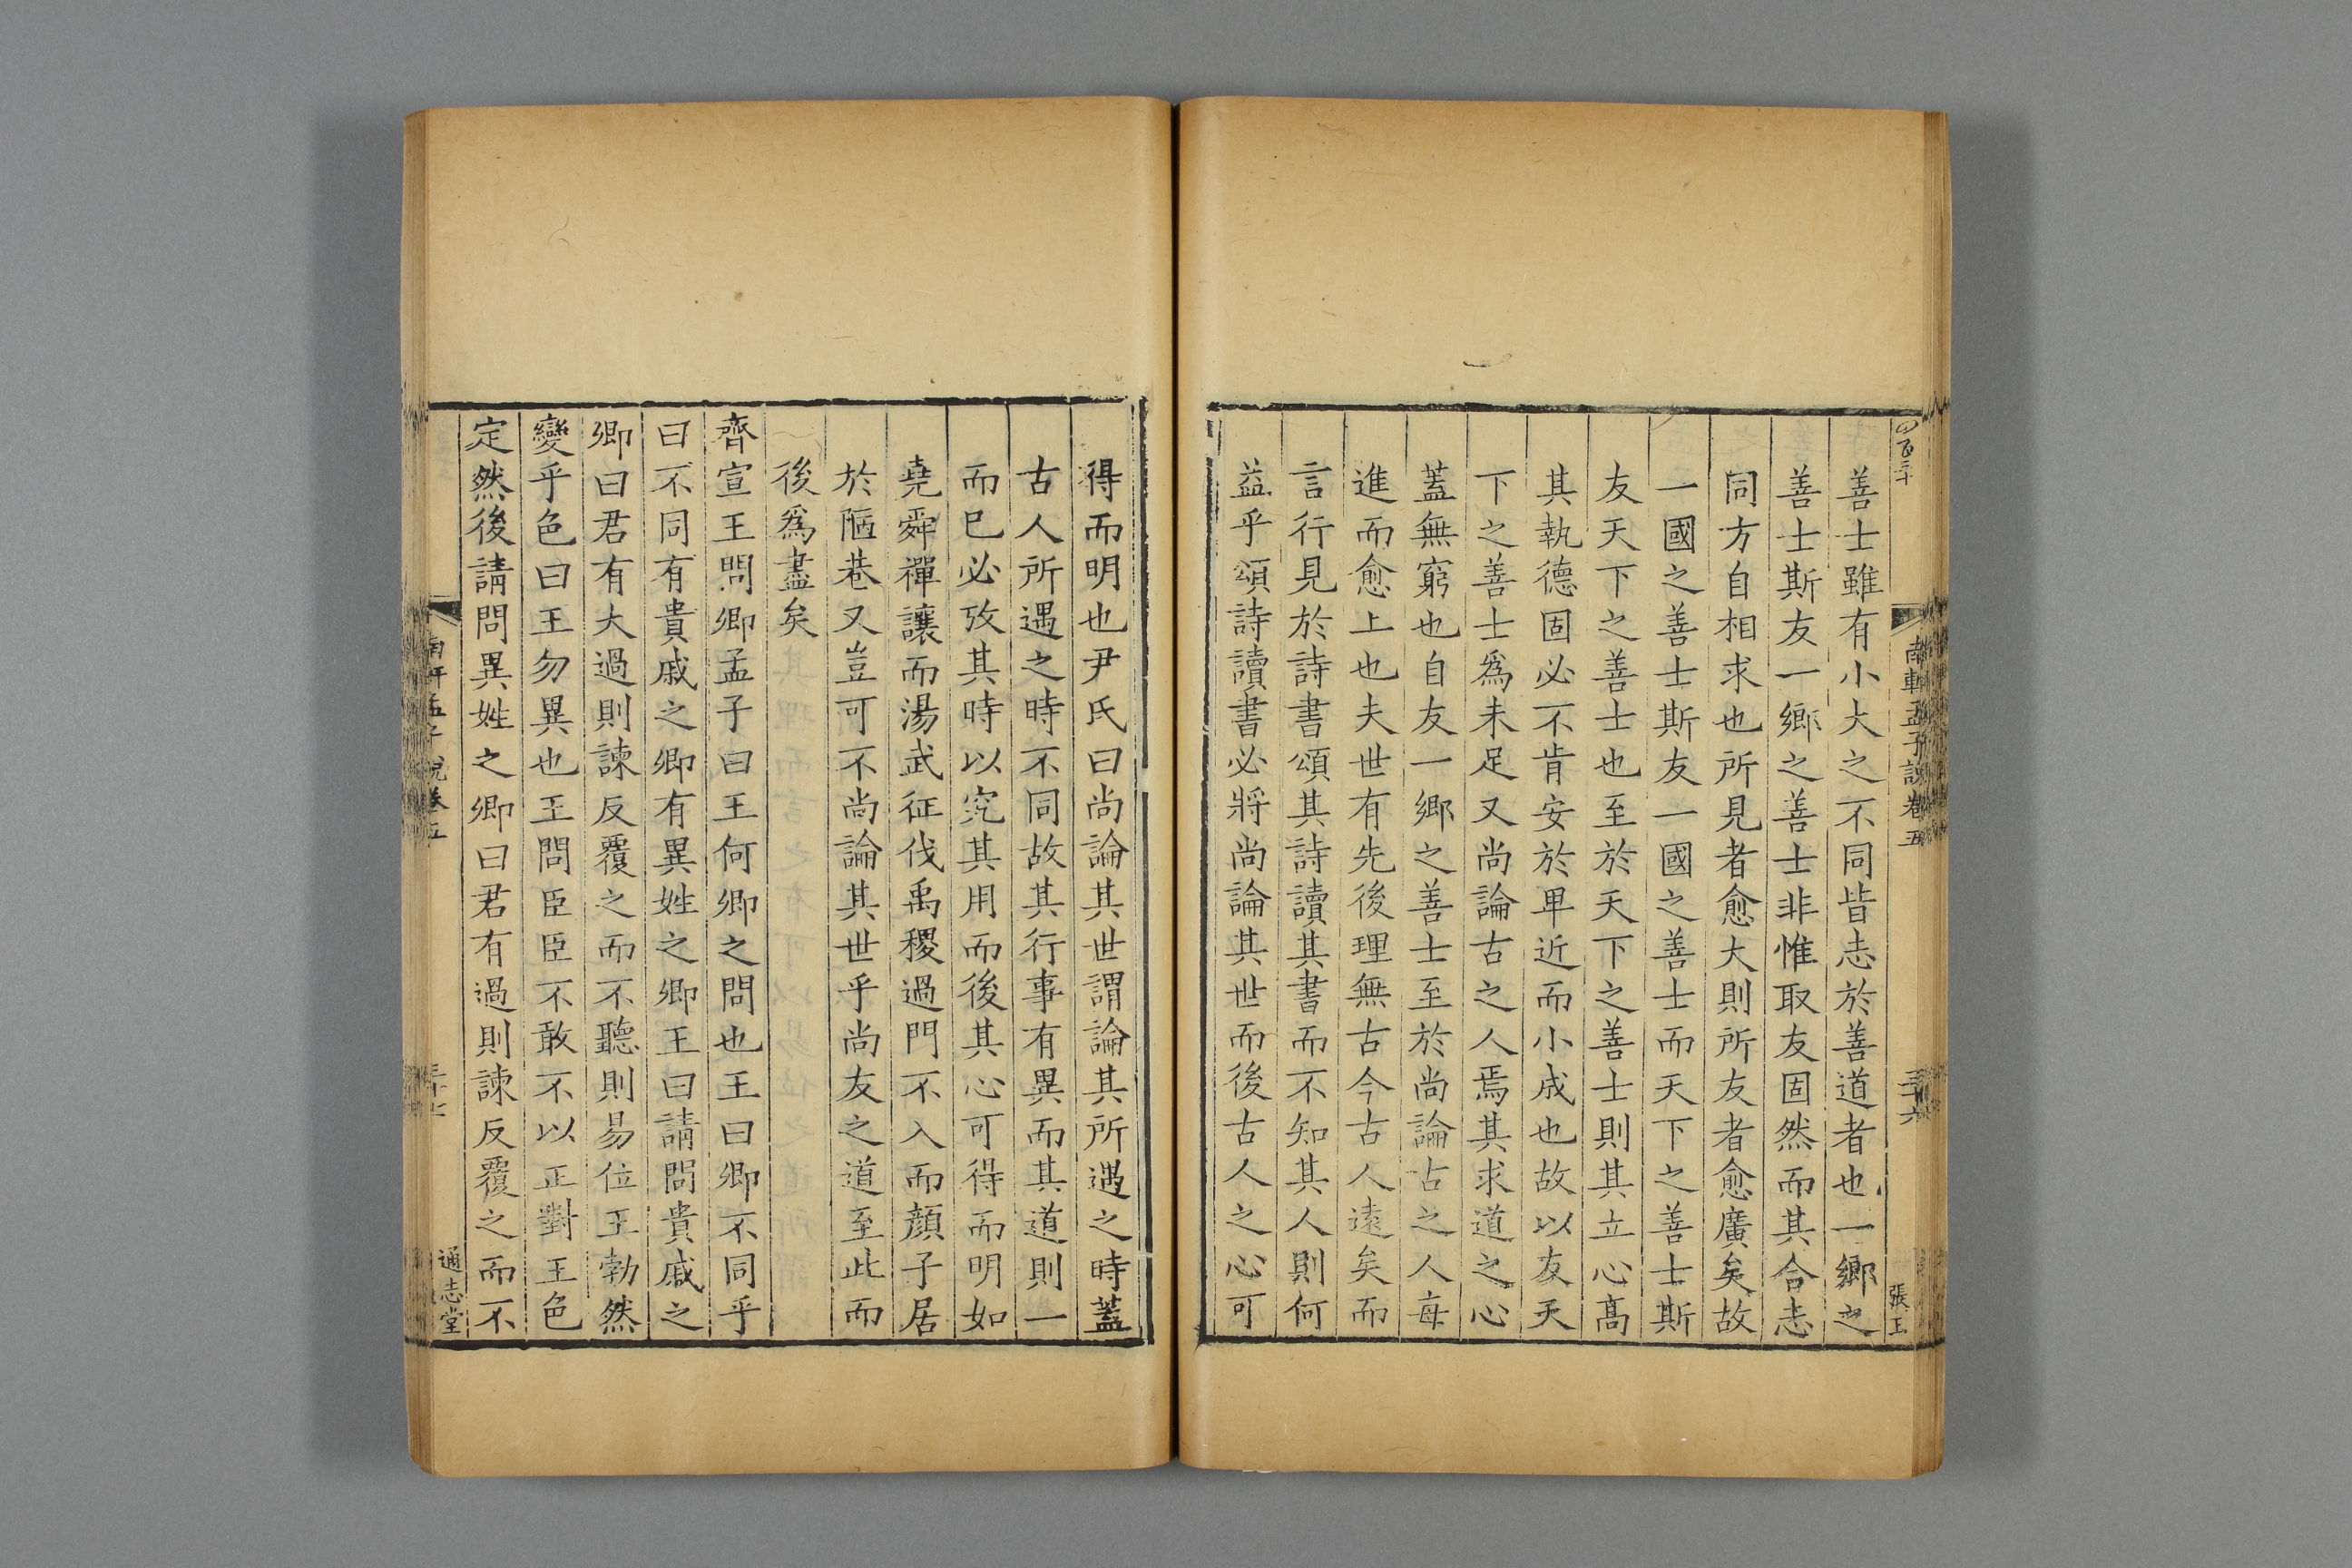 四百三十
南軒孟子說卷五
三十六
張玉
善士雖有小大之不同皆志於善道者也一鄉之
善士斯友一鄉之善士非惟取友固然而其合志
同方自相求也所見者愈大則所友者愈廣矣故
一國之善士斯友一國之善士而天下之善士斯
友天下之善士也至於天下之善士則其立心髙
其執德固必不肯安於卑近而小成也故以友天
下之善士爲未足又尚論古之人焉其求道之心
蓋無窮也自友一鄉之善士至於尚論古之人每
進而愈上也夫世有先後理無古今古人遠矣而
言行見於詩書頌其詩讀其書而不知其人則何
益乎頌詩讀書必將尚論其世而後古人之心可
得而明也尹氏曰尚論其世謂論其所遇之時蓋
古人所遇之時不同故其行事有異而其道則一
而已必攷其時以究其用而後其心可得而明如
堯舜禪讓而湯武征伐禹稷過門不入而顏子居
於陋巷又豈可不尚論其世乎尚友之道至此而
後爲盡矣
齊宣王問卿孟子曰王何卿之問也王曰卿不同乎
曰不同有貴戚之卿有異姓之卿王曰請問貴戚之
卿曰君有大過則諫反覆之而不聽則易位王勃然
變乎色曰王勿異也王問臣臣不敢不以正對王色
定然後請問異姓之卿曰君有過則諫反覆之而不
南軒孟子說卷五
三十七
通志堂